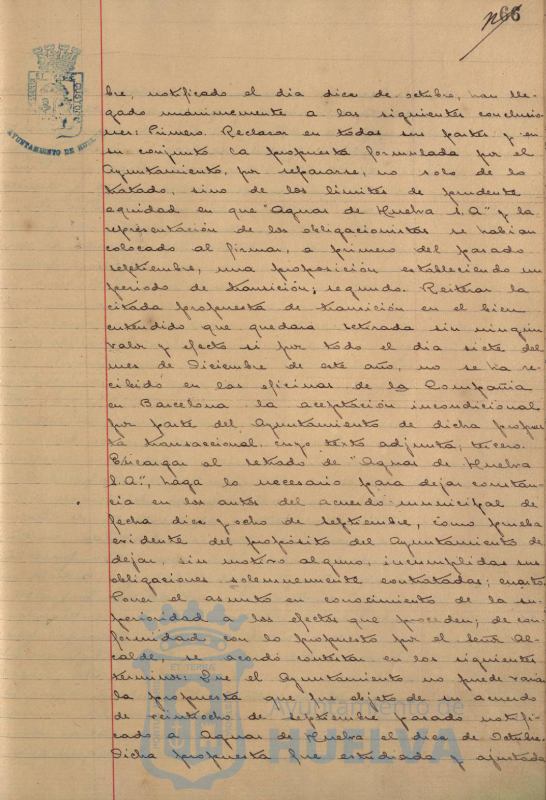 66
AYUNTAMIENTO DE HUELVA
bre, notificado el dia diez de octubre, han lle-
gado unánimemente a las siguientes conclusio-
nes: Primero. Rechazar en todas sus partes y en
su conjunto la propuesta formulada por el
Ayuntamiento, por separarse, no solo de lo
tratado, sino de los límites de prudente
equidad en que "Aguas de Huelva S.A" y la
representación de los obligacionistas se habian
colocado al firmar, a primero del pasado
septiembre, una proposición estableciendo un
periodo de transición; segundo. Reiterar la
citada propuesta de transición en el bien
entendido que quedará retirada sin ningún
valor y efecto si por todo el dia siete del
mes de Diciembre de este año, no se ha re-
cibido en las oficinas de la Compañia
en Barcelona la aceptación incondicional
por parte del Ayuntamiento de dicha propues
ta transaccional cuyo texto adjunta; tercero.
Encargar al letrado de "Aguas de Huelva
S.A", haga lo necesario para dejar constan-
cia en los autos del acuerdo municipal de
fecha diez y ocho de septiembre, como prueba
evidente del propósito del Ayuntamiento de
dejar, sin motivo alguno, incumplidas sus
obligaciones solemnemente contratadas; cuarto.
Poner el asunto en conocimiento de la su-
perioridad a los efectos que proceden; de con-
formidad con lo propuesto por el Señor Al-
calde, se acordó contestar en los siguientes
términos: Que el Ayuntamiento no puede variar
la propuesta que fue objeto de su acuerdo
de veintiocho de septiembre pasado notifi-
cado a Aguas de Huelva el diez de Octubre.
Dicha propuesta fue estudiada y ajustada
Ayuntamiento de
HUELVA